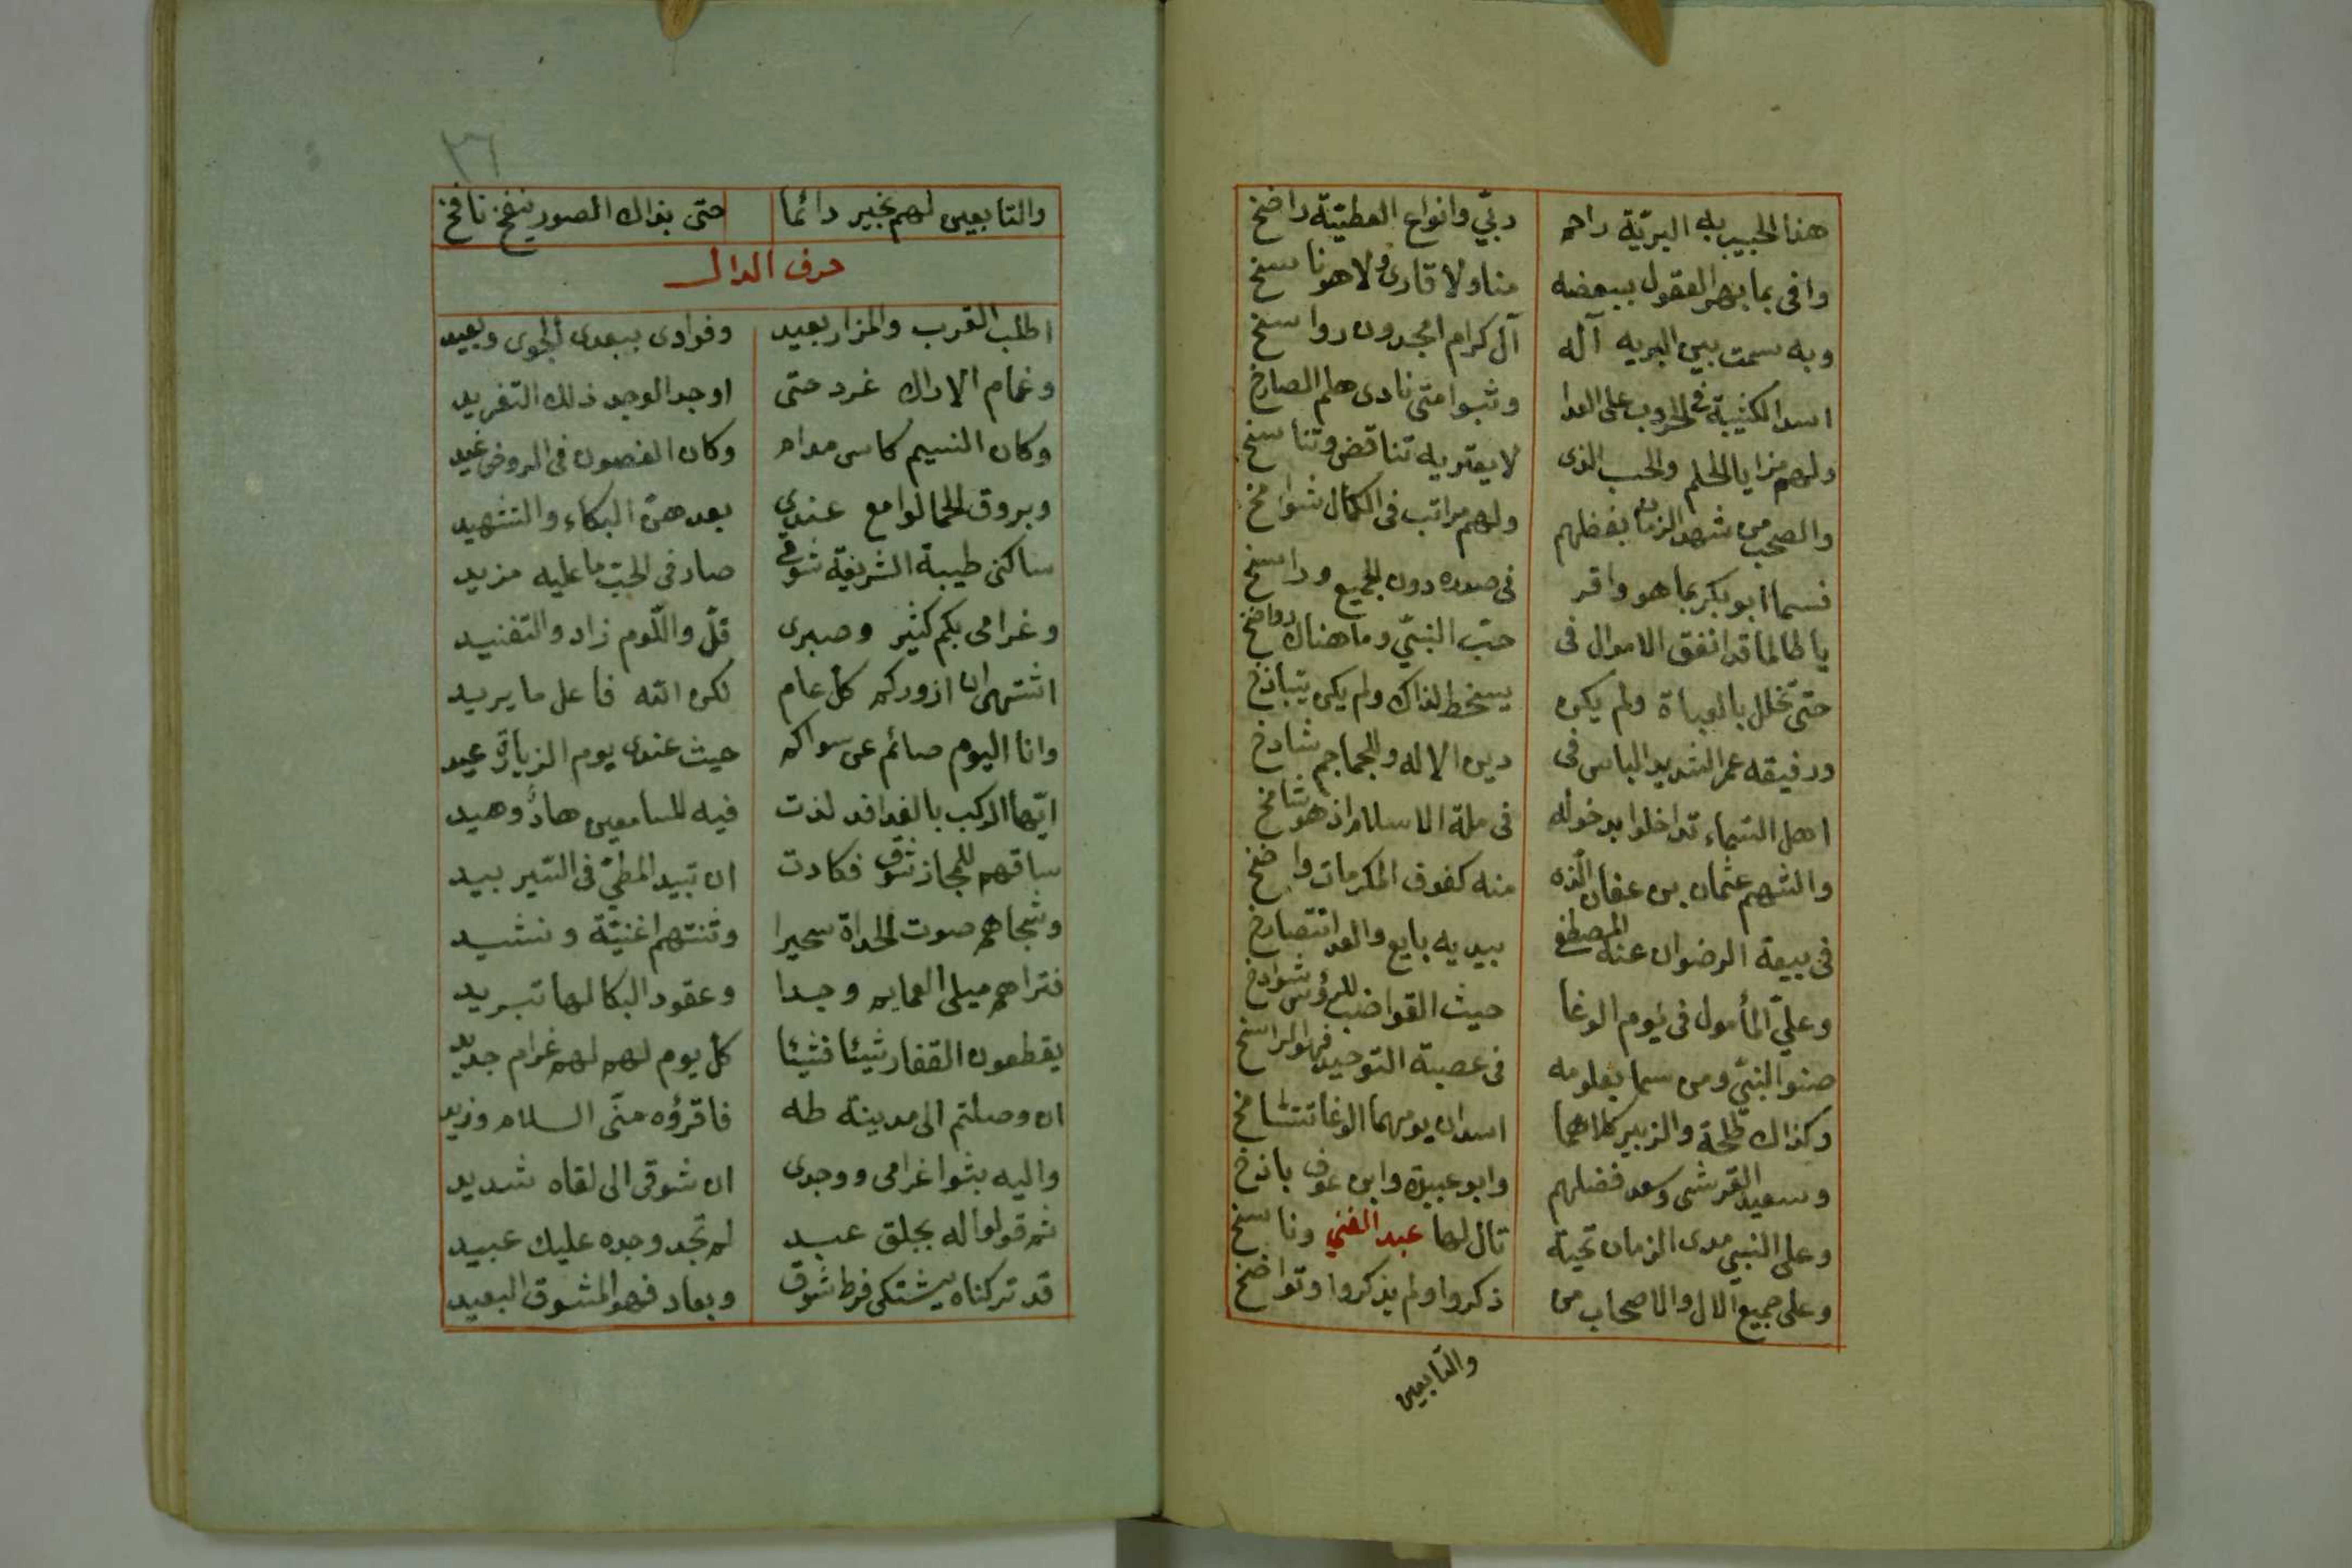 هذا الحبيب به البريّة راحم ربّي وانواع العطيّة راضخ
وافى بما بهر العقول ببعضه منا ولا قارى ولا هو ناسخ
وبه سمت بين البريه آله آل كرام امجدون رواسخ
اسد الكثيبة فى الحروب على العدا وثبوا متى نادى هلم الصارخ
ولهم مزايا الحلم والحب الذى لا يعتريه تناقض وتناسخ
والصحب من شهد الزمان بفضلهم ولهم مراتب فى الكمال شوامخ
فسما ابو بكر بما هو واقر فى صدره دون الجميع وراسخ
يا طالما قد انفق الاموال فى حبّ النبيّ وما هناك رواضخ
حتى تخلل بالعباة ولم يكن يسخط لذاك ولم يكن يتباذخ
ورفيقه عمر الشديد الباس فى دين الاله وللجماجم شادخ
اهل السّماء تداخلوا بدخوله فى ملة الاسلام اذ هو شامخ
والشهم عثمان بن عفان الّذه منه كفوف المكرمات واضخ
فى بيعة الرضوان عنه المصطفى بيديه بايع والعدا تتصارخ
وعليّ المأمول فى يوم الوغا حيث القواضب للرؤس شوادخ
صنو النبيّ ومن سما بعلومه فى عصبة التوحيد فهو الراسخ
وكذاك طلحة والزبير كلاهما اسدان يومهما الوغا تتشامخ
وسعيد القرشى وسعد فضلهم وابو عبيدة وابن عوف باذخ
وعلى النبي مدى الزمان تحية تال لها عبد الغني وناسخ
وعلى جميع الال والاصحاب من ذكروا ولم يذكروا وتواضخ
والتابعين
٣٦
والتابعين لهم بخير دائما حتى بذاك الصور ينفخ نافخ
حرف الدال
اطلب القرب والمزار بعيد وفوادى يبدى الجوى ويعيد
وغمام الاراك غرد حتى اوجد الوجد ذلك التغريد
وكان النسيم كاس مدام وكان الغصون فى الروض غيد
وبروق الحما لوامع عندي بعدهنّ البكاء والتشهيد
ساكنى طيبة الشريفة شوقى صار فى الحبّ ما عليه مزيد
وغرامى بكم كثير وصبرى قلّ واللّوم زاد والتفنيد
اشتهى ان ازوركم كل عام لكن الله فاعل ما يريد
وانا اليوم صائم عن سواكم حيث عندى يوم الزيارة عيد
ايّها الركب بالفدافد لذت فيه للسامعين هادٌ وهيد
ساقهم للحجاز شوق فكادت ان تبيد المطيّ فى السّير بيد
وشجاهم صوت الحداة سحيرا وثنتهم اغنيّة ونشيد
فتراهم ميلى العمايم وجدا وعقود البكا لها تبريد
يقطعون القفار شيئا فشيئا كل يوم لهم لهم غرام جديد
ان وصلتم الى مدينة طه فاقرؤه منّى السلام وزيد
واليه بثوا غرامى ووجدى ان شوقى الى لقاه شديد
ثم قولوا له بجلق عبد لم تجد وجده عليك عبيد
قد تركناه يشتكى فرط شوق وبعاد فهو المشوق البعيد